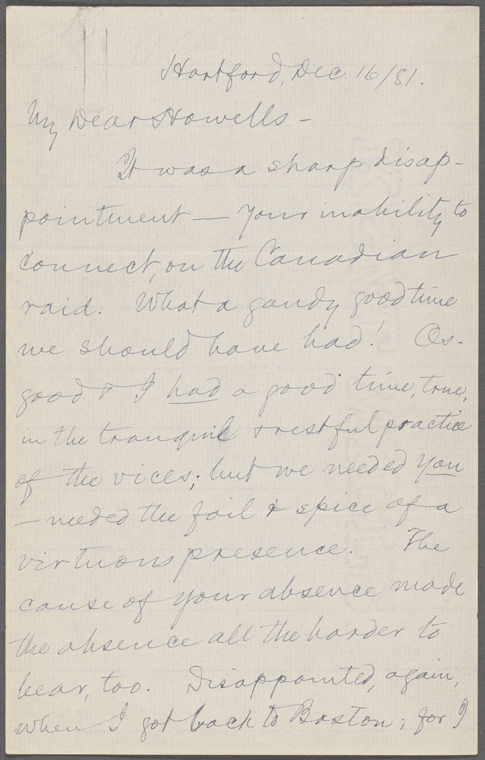 Hartford, Dec. 16/81.
My Dear Howells —
It was a sharp disap-
pointment — your inability to
connect, on the Canadian
raid. What a gaudy good time
we should have had! Os-
good & I had a good time, true,
in the tranquil & restful practice
of the vices; but we needed you
— needed the foil & spice of a
virtuous presence. The
cause of your absence made
the absence all the harder to
bear, too. Disappointed, again,
when I got back to Boston; for I